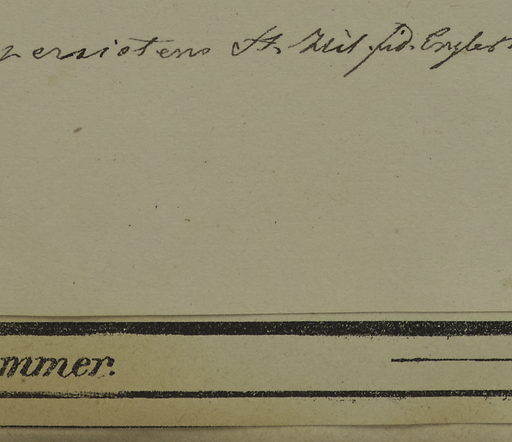 persistens St. Hil. fid. Engler
mmer.